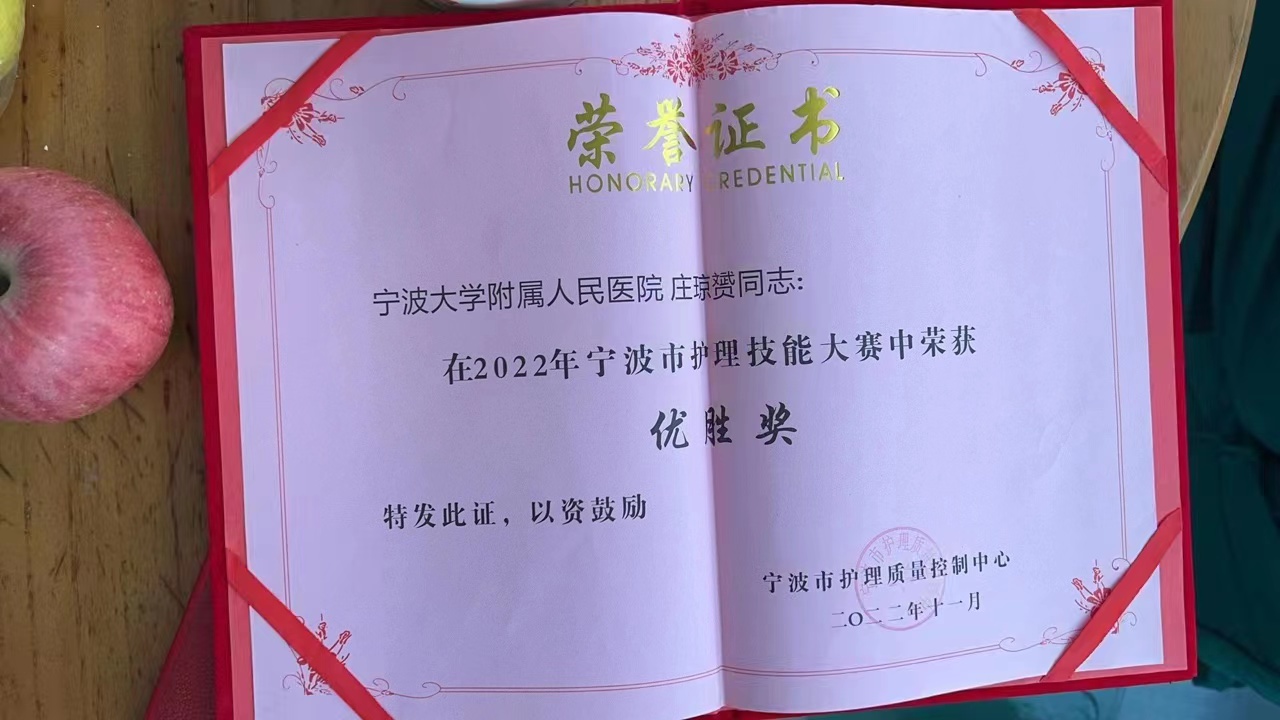 荣誉证书
HONORARY CREDENTIAL
宁波大学附属人民医院 庄琼赟同志:
在2022年宁波市护理技能大赛中荣获
优胜奖
特发此证，以资鼓励
宁波市护理质量控制中心
二〇二二年十一月
市护理质